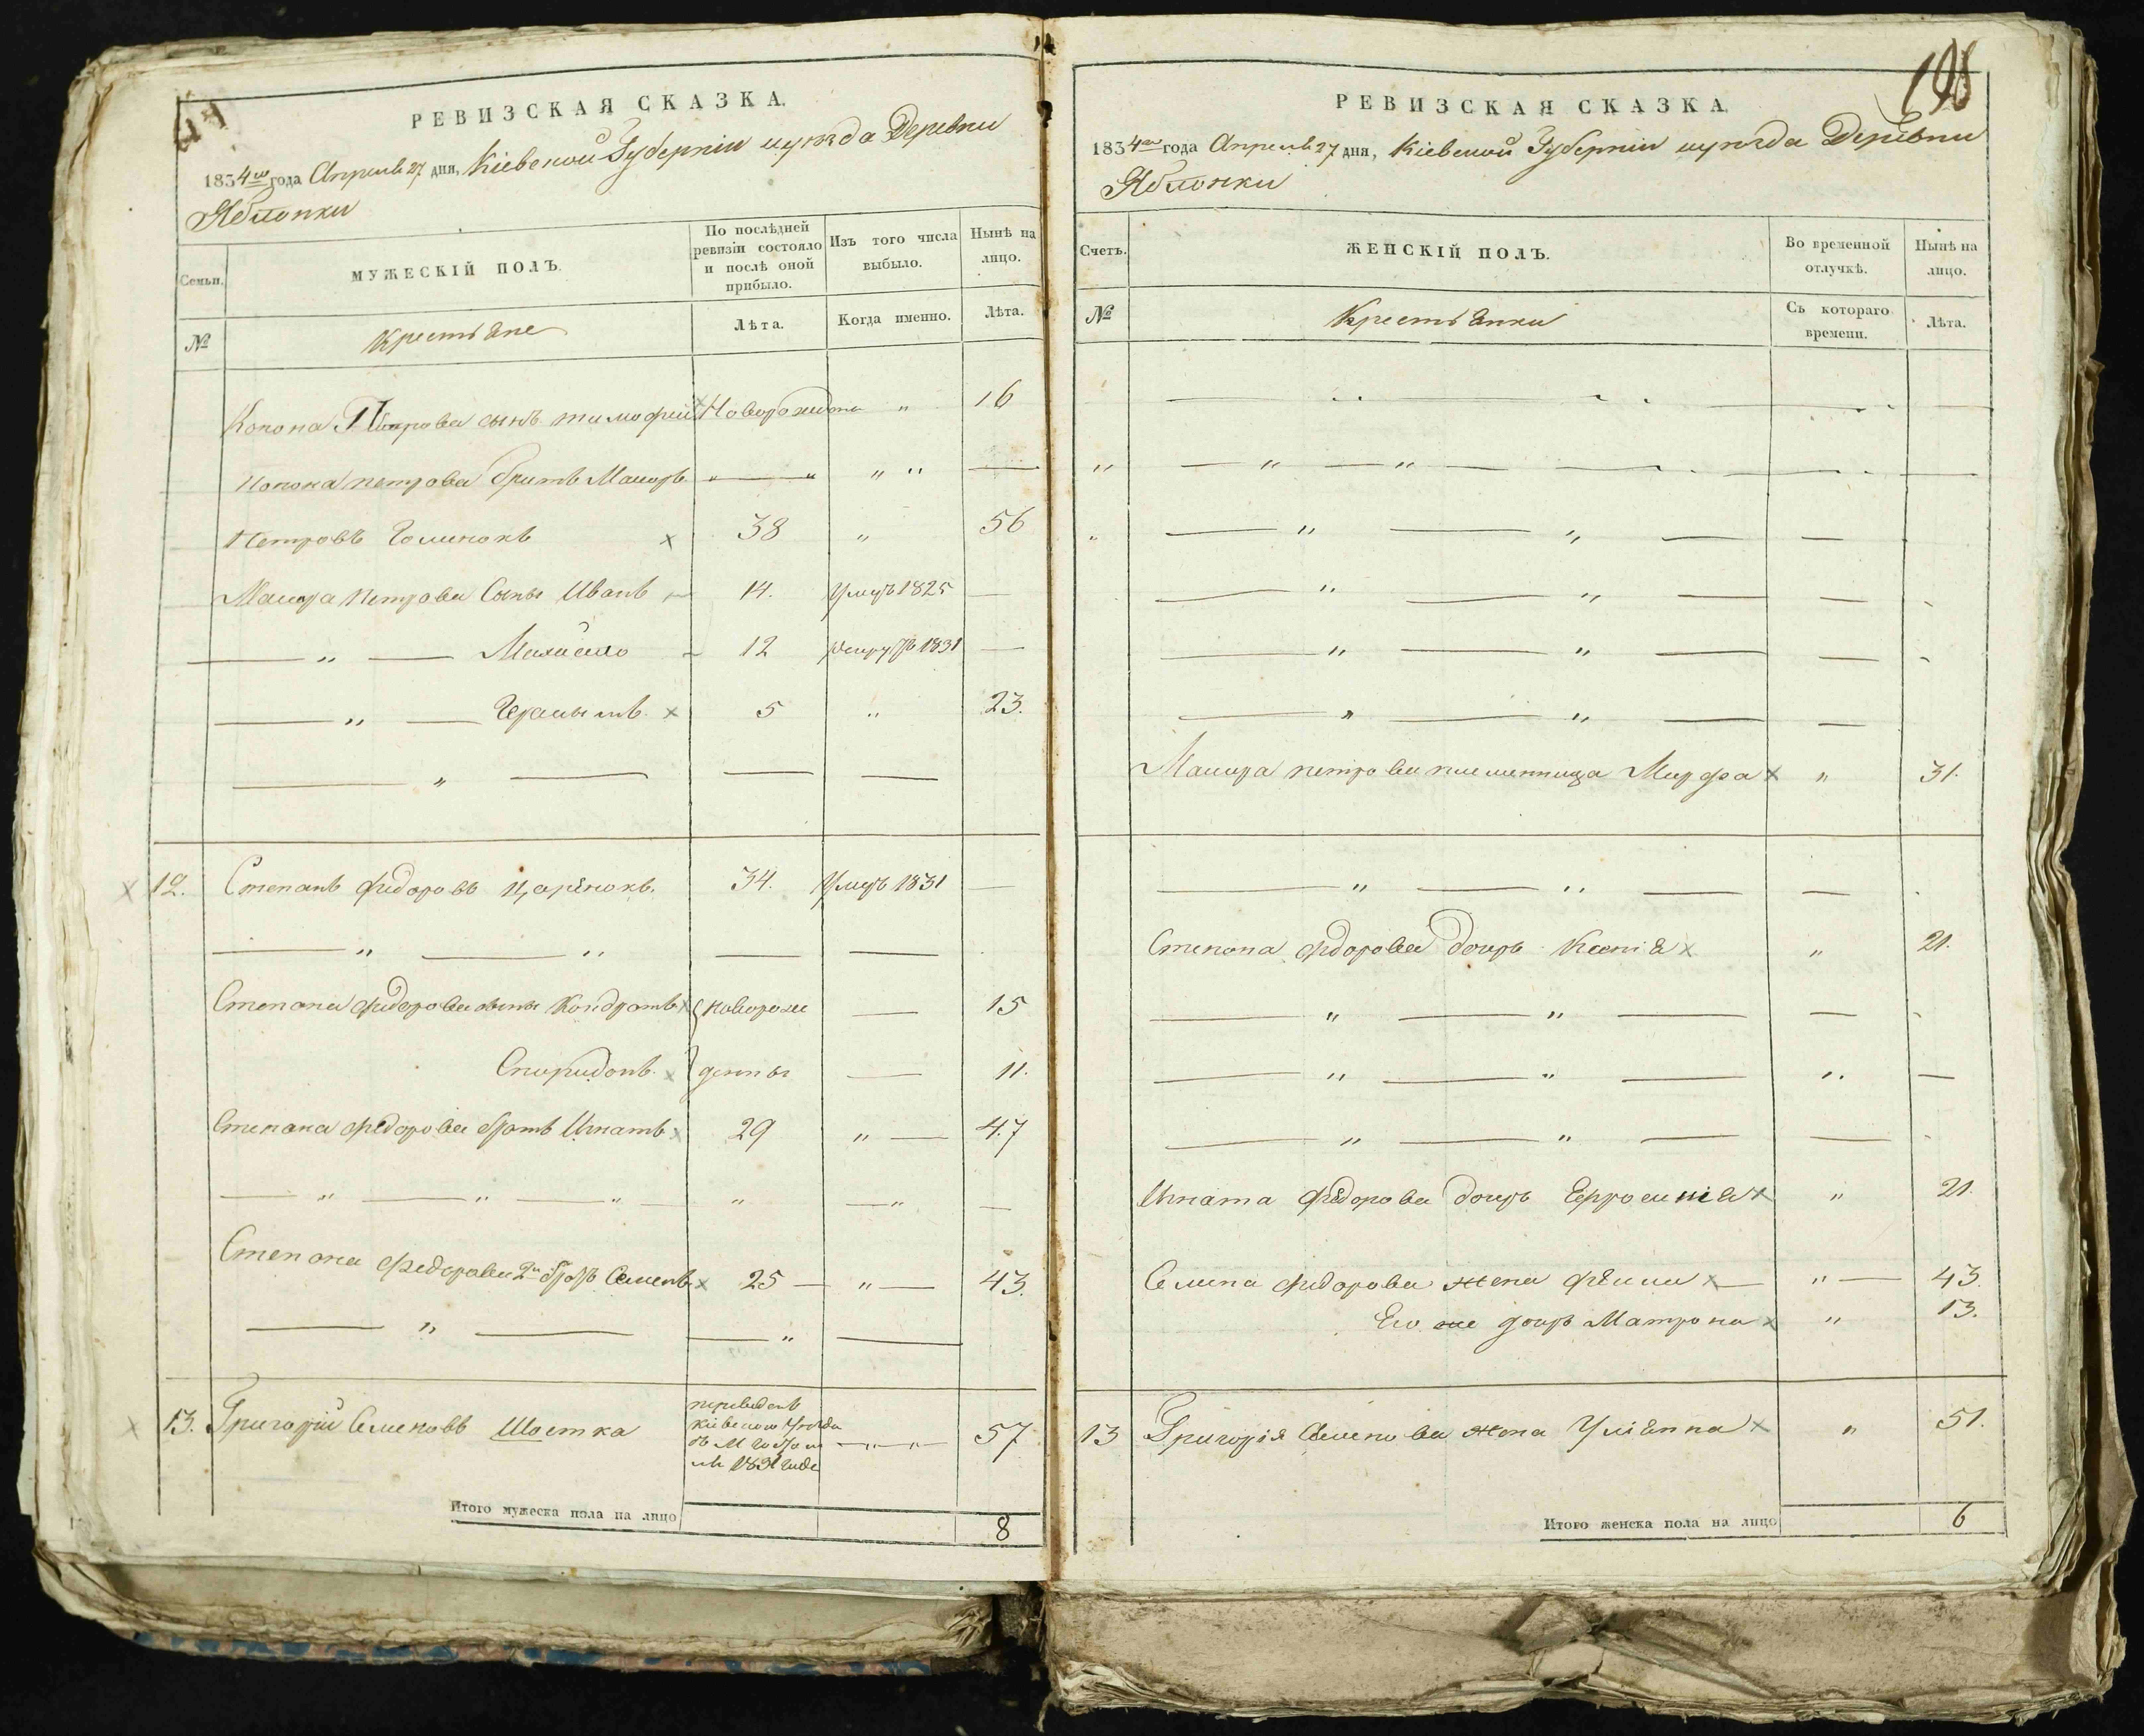 РЕВИЗСКАЯ СКАЗКА.
1834го года Апреля 27 дня, Кіевской Губерніи и уезда Деревни
Яблонки
Семьи. МУЖЕСКІЙ ПОЛЪ. По послѣдней ревизіи состояло и послѣ оной прибыло. Изъ того числа выбыло. Нынѣ на лицо.
№ Крестьяне Лѣта. Когда именно. Лѣта.
Петрова сынъ Тимофей Новорожден " 16
Петрова братъ "—" " " —
Петровъ 38 " 56
Петрова Сыны Иванъ 14. Умеръ 1825 —
—"— Михайло 12 Рекрутъ 1831 —
—"— 5 " 23.
—"— — —
12. Степанъ Федоровъ Царенокъ. 34. Умеръ 1831 —
—"—" — —
Степана Федорова сыны Кондратъ новорож — 15
Спиридонъ. денны — 11.
Степана Федорова братъ Игнатъ 29 "— 47
—"—"—"— " —" —
Степана Федорова 2й братъ Семенъ 25 — "— 43.
—"— —" —
13. Григорій Семеновъ Шостка переведенъ Кіевского Уезда 57
1831 года
Итого мужеска пола на лицо 8
198
РЕВИЗСКАЯ СКАЗКА.
1834го года Апреля 27 дня, Кіевской Губерніи и уезда Деревни
Яблонки
Счетъ. ЖЕНСКІЙ ПОЛЪ. Во временной отлучкѣ. Нынѣ на лицо.
№ Крестьянки Съ котораго времени. Лѣта.
Петрова племенница Марфа " 31.
—"—"— —
Степана Федорова дочрь Ксенія " 21.
—"—"— —
—"—"— " —
—"—"— —
Игната Федорова дочрь Ефросинія " 21.
Семена Федорова жена "— 43.
Его же дочрь Матрона " 13.
13 Григорія Семенова жена Уліянна " 51.
Итого женска пола на лицо 6